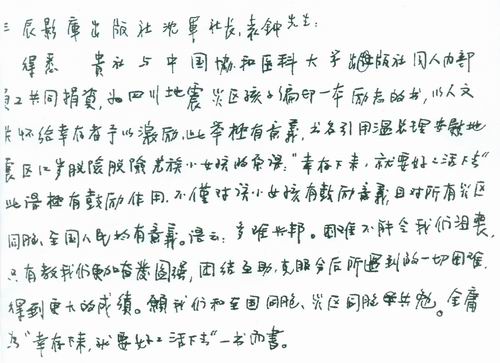 三辰影庫出版社沈軍社长,袁钟先生:
得悉 貴社与中国協和医科大学出版社同人内部
員工共同捐資,为四川地震災区孩子编印一本励志的书,以人文
关怀给幸存者予以激励,此举極有意義,书名引用温总理安慰地
震区12岁脱險羌族小女孩的:"幸存下来,就要好好活下去"
此语極有鼓励作用,不僅对该小女孩有鼓励意義,且对所有災区
同胞、全国人民均有意義。语云:多难兴邦。困难不能令我们沮喪,
只有教我们更加奋發图强,团结互助,克服今后所遇到的一切困难,
得到更大的成績。願我们和全国同胞、災区同胞共勉。金庸
为"幸存下来,就要好好活下去"一书而書。